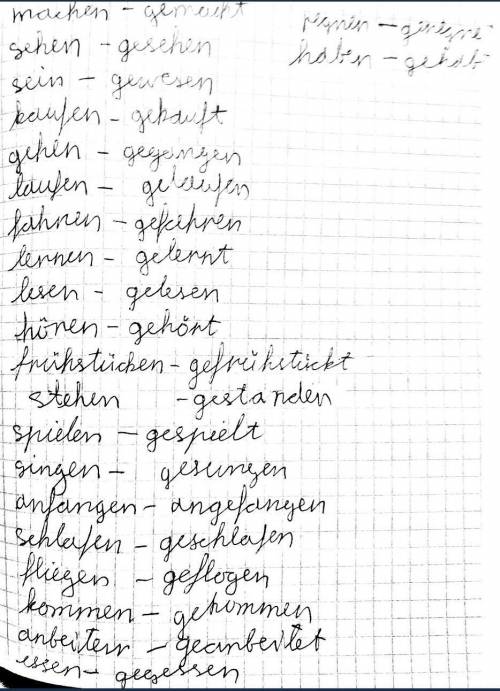 machen - gemacht
sehen - gesehen
sein - gewesen
kaufen - gekauft
gehen - gegangen
laufen - gelaufen
fahren - gefahren
lernen - gelernt
lesen - gelesen
hören - gehört
frühstücken - gefrühstückt
stehen - gestanden
spielen - gespielt
singen - gesungen
anfangen - angefangen
schlafen - geschlafen
fliegen - geflogen
kommen - gekommen
arbeiten - gearbeitet
essen - gegessen
regnen - geregne
haben - gehab